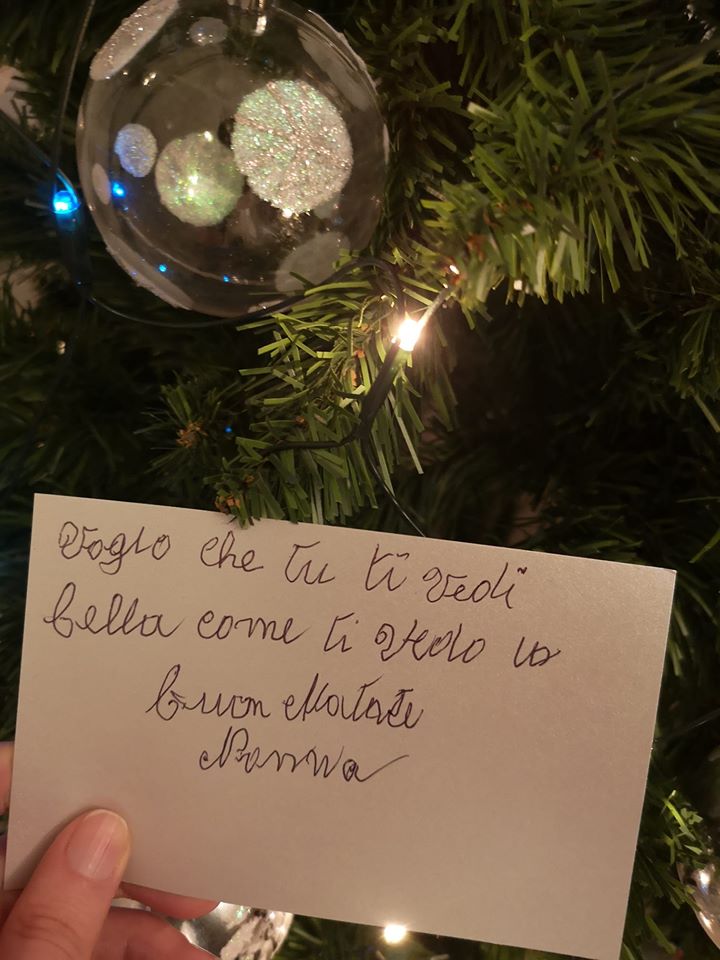 Voglio che tu ti vedi
bella come ti vedo io
buon Natale
Nonna